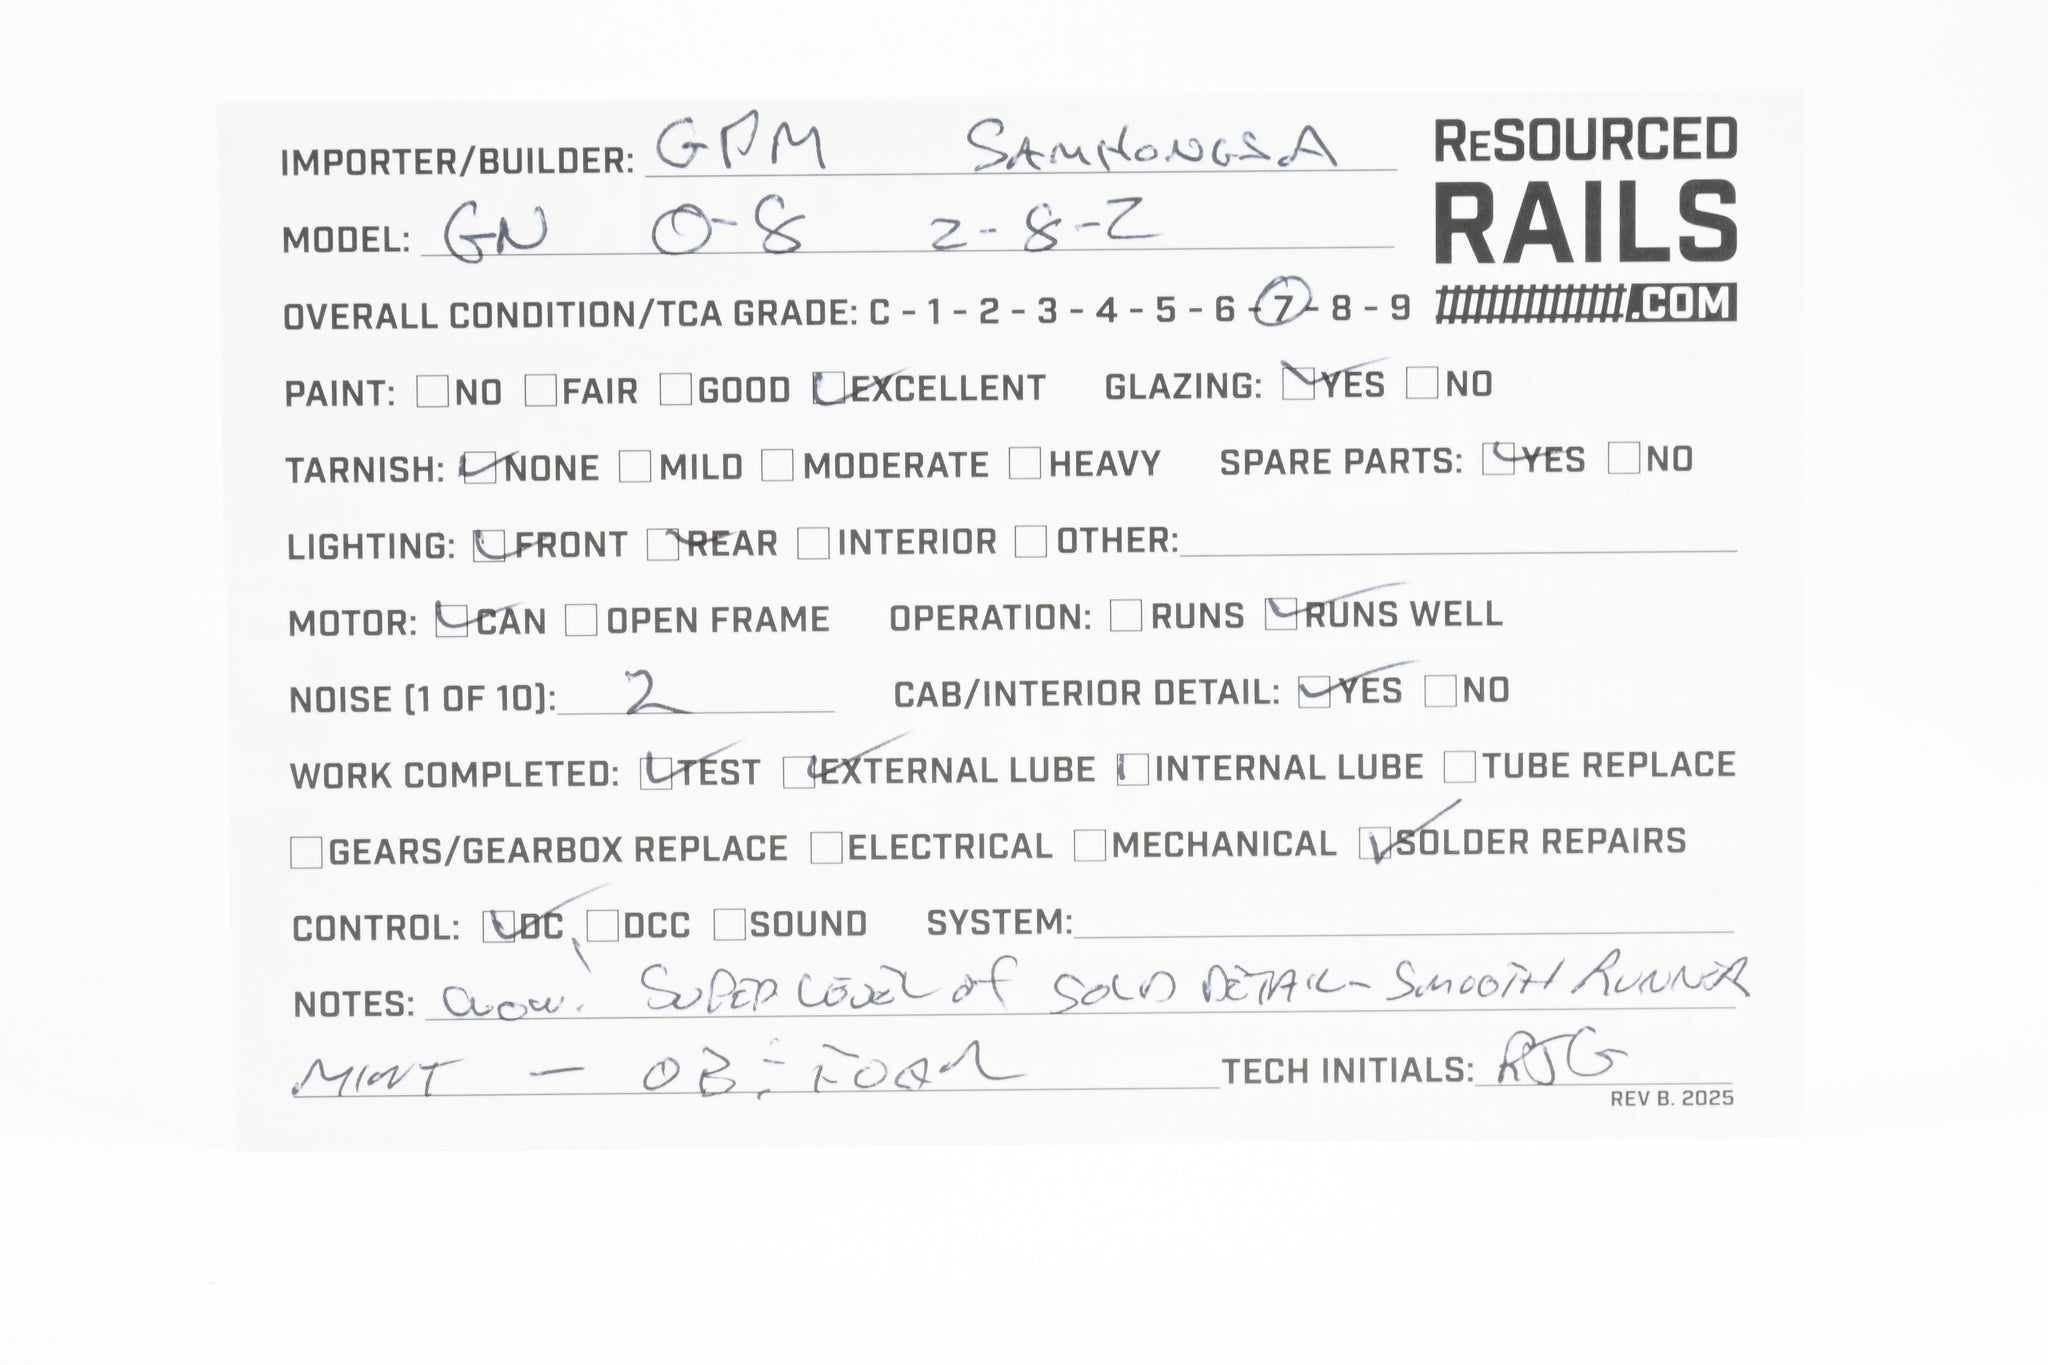 IMPORTER/BUILDER: GPM SAMHONGSA
RESOURCED
RAILS
.COM
MODEL: GN O-8 2-8-2
OVERALL CONDITION/TCA GRADE: C - 1 - 2 - 3 - 4 - 5 - 6 - 7 - 8 - 9
PAINT: NO FAIR GOOD EXCELLENT GLAZING: YES NO
TARNISH: NONE MILD MODERATE HEAVY SPARE PARTS: YES NO
LIGHTING: FRONT REAR INTERIOR OTHER:
MOTOR: CAN OPEN FRAME OPERATION: RUNS RUNS WELL
NOISE (1 OF 10): 2 CAB/INTERIOR DETAIL: YES NO
WORK COMPLETED: TEST EXTERNAL LUBE INTERNAL LUBE TUBE REPLACE
GEARS/GEARBOX REPLACE ELECTRICAL MECHANICAL SOLDER REPAIRS
CONTROL: DC DCC SOUND SYSTEM:
NOTES: Wow! SUPER LEVEL of SOLD DETAIL - SMOOTH RUNNER
MINT - OB & FOAM TECH INITIALS: RJG
REV B. 2025